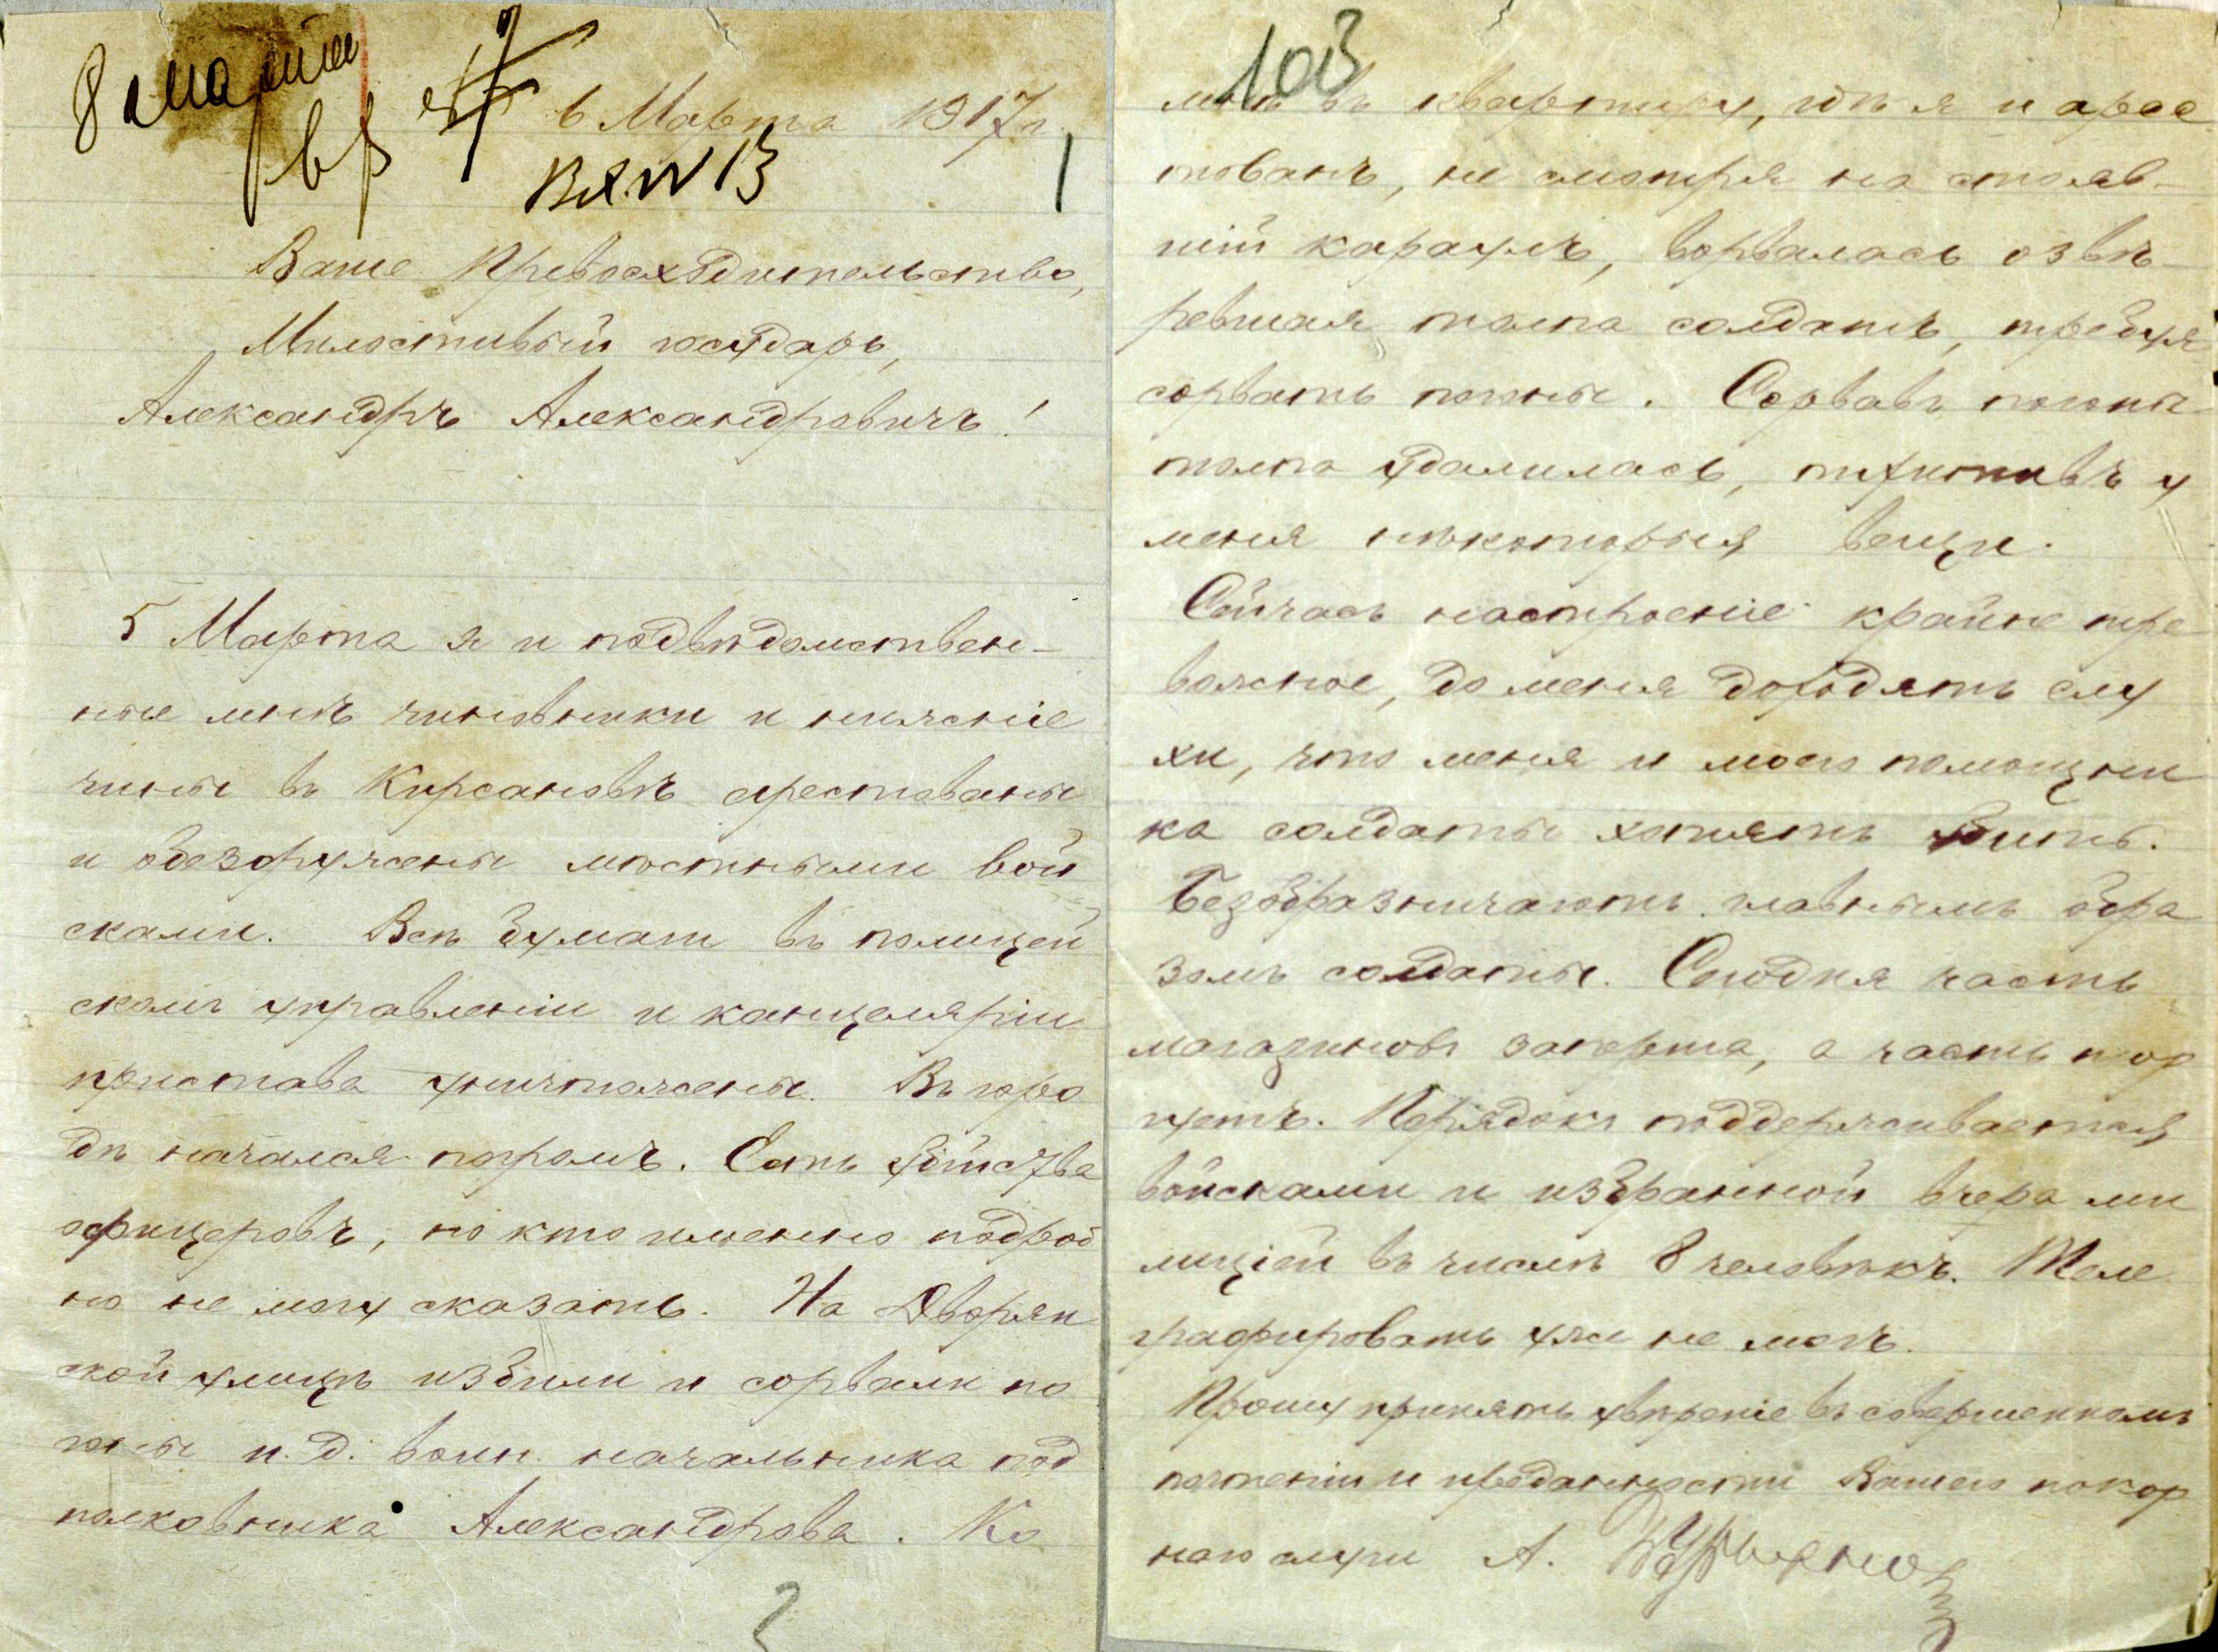 8 марта
6 Марта 1917 г.
Вх N 13
1
Ваше Превосходительство,
Милостивый государь,
Александръ Александровичъ!
5 Марта я и подвѣдомствен-
ные мнѣ чиновники и нижніе
чины въ Кирсановѣ арестованы
и обезоружены мѣстными вой
сками. Всѣ бумаги въ полицей
скомъ управленіи и канцеляріи
пристава уничтожены. Въ горо
дѣ начался погромъ. Есть убійства
офицеровъ, но кто именно подроб
но не могу сказать. На Дворян
ской улицѣ избили и сорвали по
гоны и. д. воин. начальника под
полковника Александрова. Ко
2
103
мнѣ въ квартиру, гдѣ я и арес
тованъ, не смотря на стояв-
шій караулъ, ворвалась озвѣ-
ревшая толпа солдатъ, требуя
сорвать погоны. Сорвавъ погоны
толпа удалилась, похитивъ у
меня нѣкоторыя вещи.
Сейчасъ настроеніе крайне тре
вожное, до меня доходятъ слу
хи, что меня и моего помощни
ка солдаты хотятъ убить.
Безобразничаютъ главнымъ обра
зомъ солдаты. Сегодня часть
магазиновъ заперта, а часть тор
гуетъ. Порядокъ поддерживается
войсками и избранной вчера ми
лиціей въ числѣ 8 человѣкъ. Теле
графировать уже не могъ.
Прошу принять увѣреніе въ совершенномъ
почтеніи и преданности Вашего покор
наго слуги А.